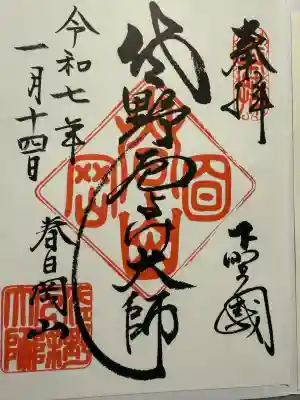 奉拝
下野國
佐野厄よけ大師
令和七年
一月十四日
春日岡山